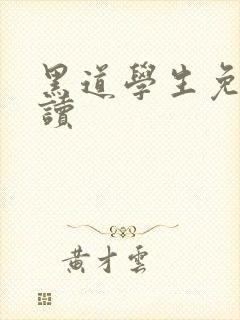 黑道學生免
讀
黄才雲